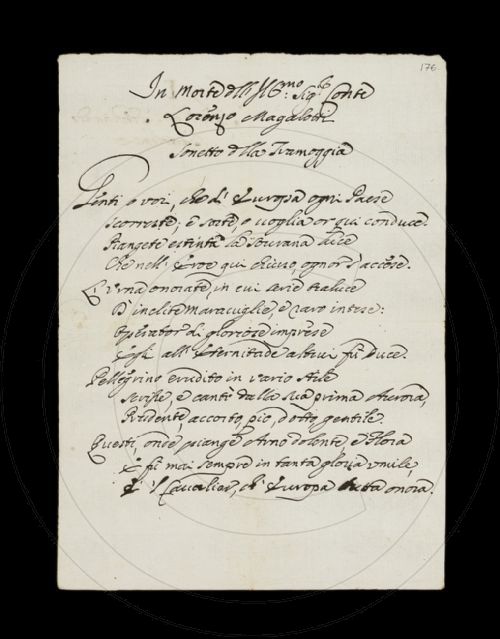 176
In Morte dell' Ill.mo Sig.r Conte
Lorenzo Magalotti
Sonetto della Tramoggia
Genti o voi, che d' Europa ogni Paese
scorreste, e sorte, o voglia or qui conduce
Piangete estinta la sovrana luce
Che nell' Eroe qui chiuso, ognor s' accese.
L' Urna onorate, in cui serie traluce
D' inclite Maraviglie, e raro intese:
Operator di gloriose imprese
Egli all' Eternitade altrui fu Duce.
Pellegrino erudito in vario stile
Scrisse, e cantò dalla sua prima Aurora,
Prudente, accorto, pio, dotto, gentile.
Questi, onde piange Arno dolente e Flora
E fu mai sempre in tanta gloria umile,
È 'l Cavalier, ch' Europa tutta onora.